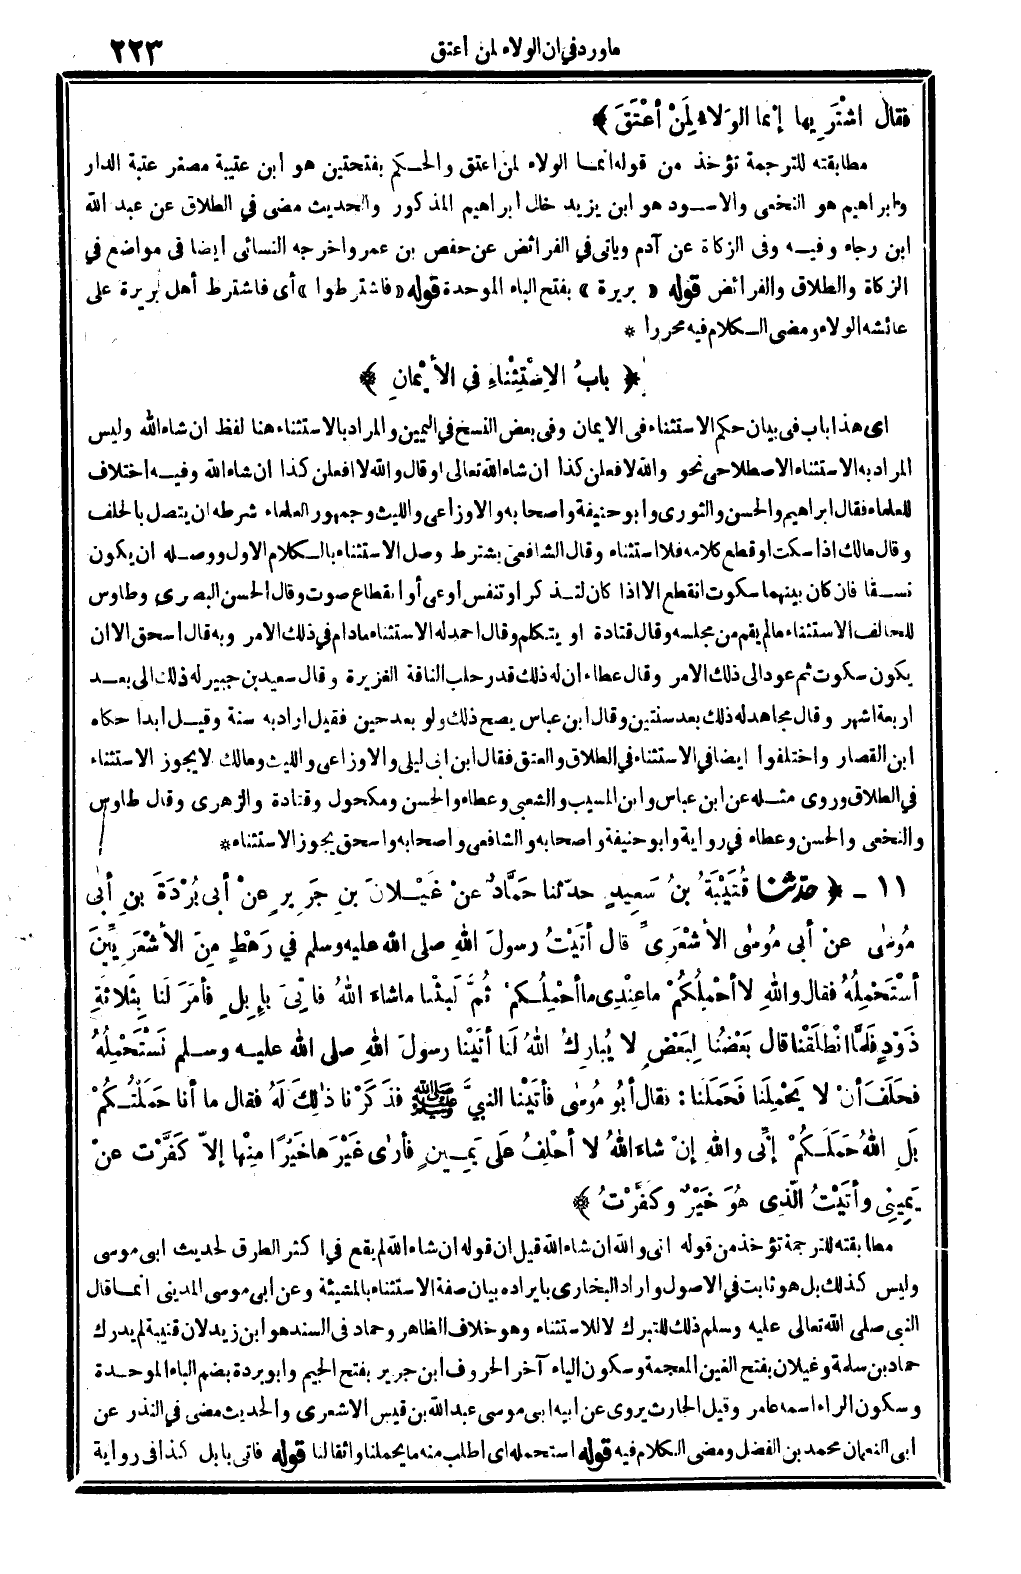 ماورد في ان الولاء لمن أعتق
٢٢٣
فقال اشْتَرِيها إنما الوَلاءُ لِمَنْ أعْتَقَ ﴾
مطابقته للترجمة تؤخذ من قوله انما الولاء لمن اعتق والحكم بفتحتين هو ابن عتيبة مصغر عتبة الدار
وابراهيم هو النخعى والاسود هو ابن يزيد خال ابراهيم المذكور والحديث مضى في الطلاق عن عبد الله
ابن رجاء وفيه وفى الزكاة عن آدم وياتى في الفرائض عن حفص بن عمر واخرجه النسائى أيضا فى مواضع في
الزكاة والطلاق والفرائض قوله « بريرة » بفتح الباء الموحدة قوله « فاشترطوا » أى فاشترط أهل بريرة على
عائشه الولاء ومضى الكلام فيه محررا *
﴿ بابُ الاِسْتِثْناءِ فى الأَيْمانِ ﴾
اى هذا باب فى بيان حكم الاستثناء فى الايمان وفى بعض النسخ في اليمين والمراد بالاستثناء هنا لفظ ان شاء الله وليس
المراد به الاستثناء الاصطلاحى نحو والله لافعلن كذا ان شاء الله تعالى او قال والله لا افعلن كذا ان شاء الله وفيه اختلاف
للعلماء فقال ابراهيم والحسن والثورى وابو حنيفة واصحابه والاوزاعى والليث وجمهور العلماء شرطه ان يتصل بالحلف
وقال مالك اذا سكت او قطع كلامه فلا استثناء وقال الشافعى يشترط وصل الاستثناء بالكلام الاول ووصله ان يكون
نسقا فان كان بينهما سكوت انقطع الا اذا كان لتذكر او تنفس أوعى أو انقطاع صوت وقال الحسن البصرى وطاوس
للحالف الاستثناء مالم يقم من مجلسه وقال قتادة او يتكلم وقال احمد له الاستثناء مادام في ذلك الامر وبه قال اسحق الا ان
يكون سكوت ثم عود الى ذلك الامر وقال عطاء ان له ذلك قدر حلب الناقة الغزيرة وقال سعيد بن جبير له ذلك الى بعد
اربعة اشهر وقال مجاهد له ذلك بعد سنتين وقال ابن عباس يصح ذلك ولو بعد حين فقيل اراد به سنة وقيل أبدا حكاه
ابن القصار واختلفوا ايضا في الاستثناء في الطلاق والعتق فقال ابن ابى ليلى والاوزاعى والليث ومالك لا يجوز الاستثناء
في الطلاق وروى مثله عن ابن عباس وابن المسيب والشعبى وعطاء والحسن ومكحول وقتادة والزهرى وقال طاوس
والنخعى والحسن وعطاء في رواية وابو حنيفة واصحابه والشافعى واصحابه واسحق يجوز الاستثناء *
١١ - ﴿ حَدَّثَنَا قُتَيْبَةُ بنُ سَعِيدٍ حدّثنا حَمَّادٌ عنْ غَيْلانَ بنِ جَرِيرٍ عنْ أبى بُرْدَةَ بنِ أبى
مُوسٰى عنْ أبى مُوسٰى الأشْعَرِىِّ قال أتَيْتُ رسولَ اللهِ صلى الله عليه وسلم في رَهْطٍ مِنَ الأشْعَرِيِّينَ
أسْتَحْمِلُهُ فقال واللهِ لا أحْمِلُكُمْ ما عِنْدِى ما أحْمِلُكُمْ ثُمَّ لَبِثْنا ما شاءَ اللهُ فأُتِىَ بإِبِلٍ فأمَرَ لَنا بِثَلاثَةِ
ذَوْدٍ فَلَمَّا انْطَلَقْنا قال بَعْضُنا لِبَعْضٍ لا يُبارِكُ اللهُ لَنا أتَيْنا رسولَ اللهِ صلى الله عليه وسلم نَسْتَحْمِلُهُ
فَحَلَفَ أنْ لا يَحْمِلَنا فَحَمَلَنا : فقال أبُو مُوسٰى فأتَيْنا النبىَّ ﷺ فَذَكَرْنا ذٰلِكَ لَهُ فقال ما أنا حَمَلْتُكُمْ
بَلِ اللهُ حَمَلَكُمْ إنِّى واللهِ إنْ شاءَ اللهُ لا أحْلِفُ عَلى يَمِينٍ فأرٰى غَيْرَها خَيْرًا مِنْها إلاّ كَفَّرْتُ عنْ
يَمِينِى وأتَيْتُ الَّذِى هُوَ خَيْرٌ وكَفَّرْتُ ﴾
مطابقته للترجمة تؤخذ من قوله انى والله ان شاء الله قيل ان قوله ان شاء الله لم يقع في اكثر الطرق لحديث ابى موسى
وليس كذلك بل هو ثابت في الاصول واراد البخارى بايراده بيان صفة الاستثناء بالمشيئة وعن ابى موسى المدينى انما قال
النبى صلى الله تعالى عليه وسلم ذلك للتبرك لا للاستثناء وهو خلاف الظاهر وحماد فى السند هو ابن زيد لان قتيبة لم يدرك
حماد بن سلمة وغيلان بفتح الغين المعجمة وسكون الياء آخر الحروف ابن جرير بفتح الجيم وابو بردة بضم الباء الموحدة
وسكون الراء اسمه عامر وقيل الحارث يروى عن ابيه ابى موسى عبد الله بن قيس الاشعرى والحديث مضى في النذر عن
ابى النعمان محمد بن الفضل ومضى الكلام فيه قوله استحمله اى اطلب منه ما يحملنا واثقالنا قوله فاتى بابل كذا فى رواية